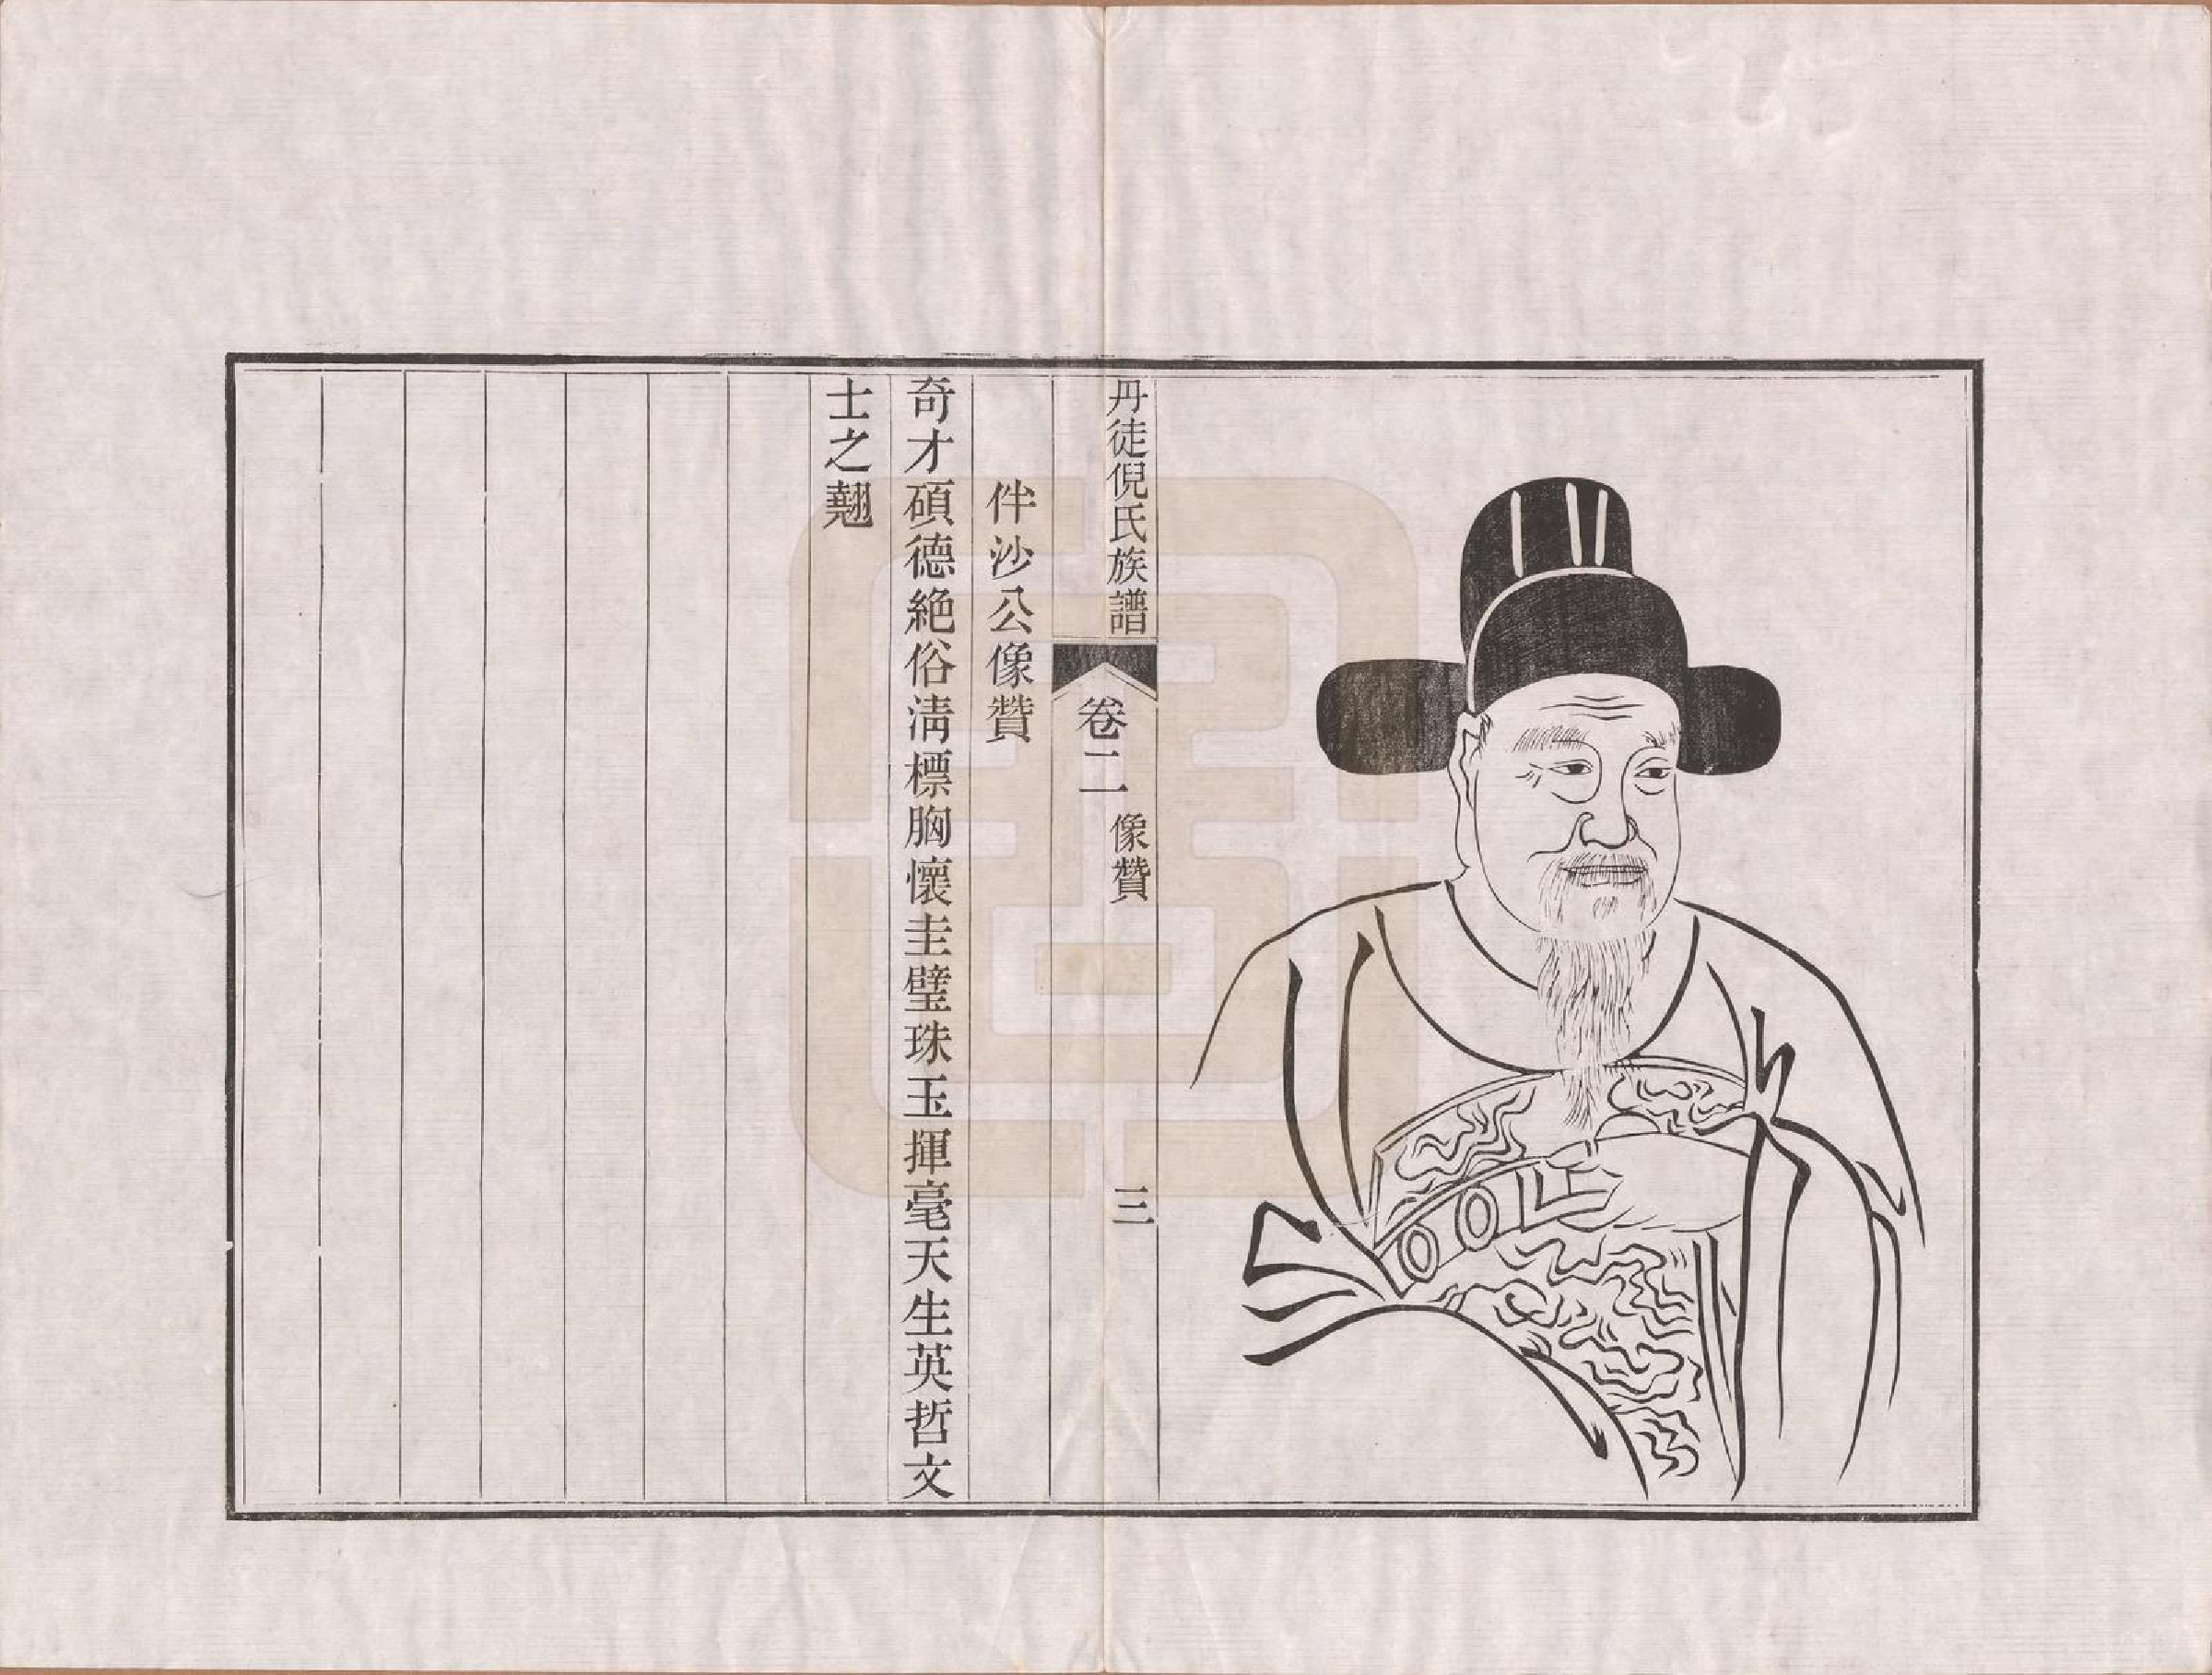 丹徒倪氏族譜
卷二
像贊
三
伴沙公像贊
奇才碩德絕俗淸標胸懷圭璧珠玉揮毫天生英哲文
士之翹